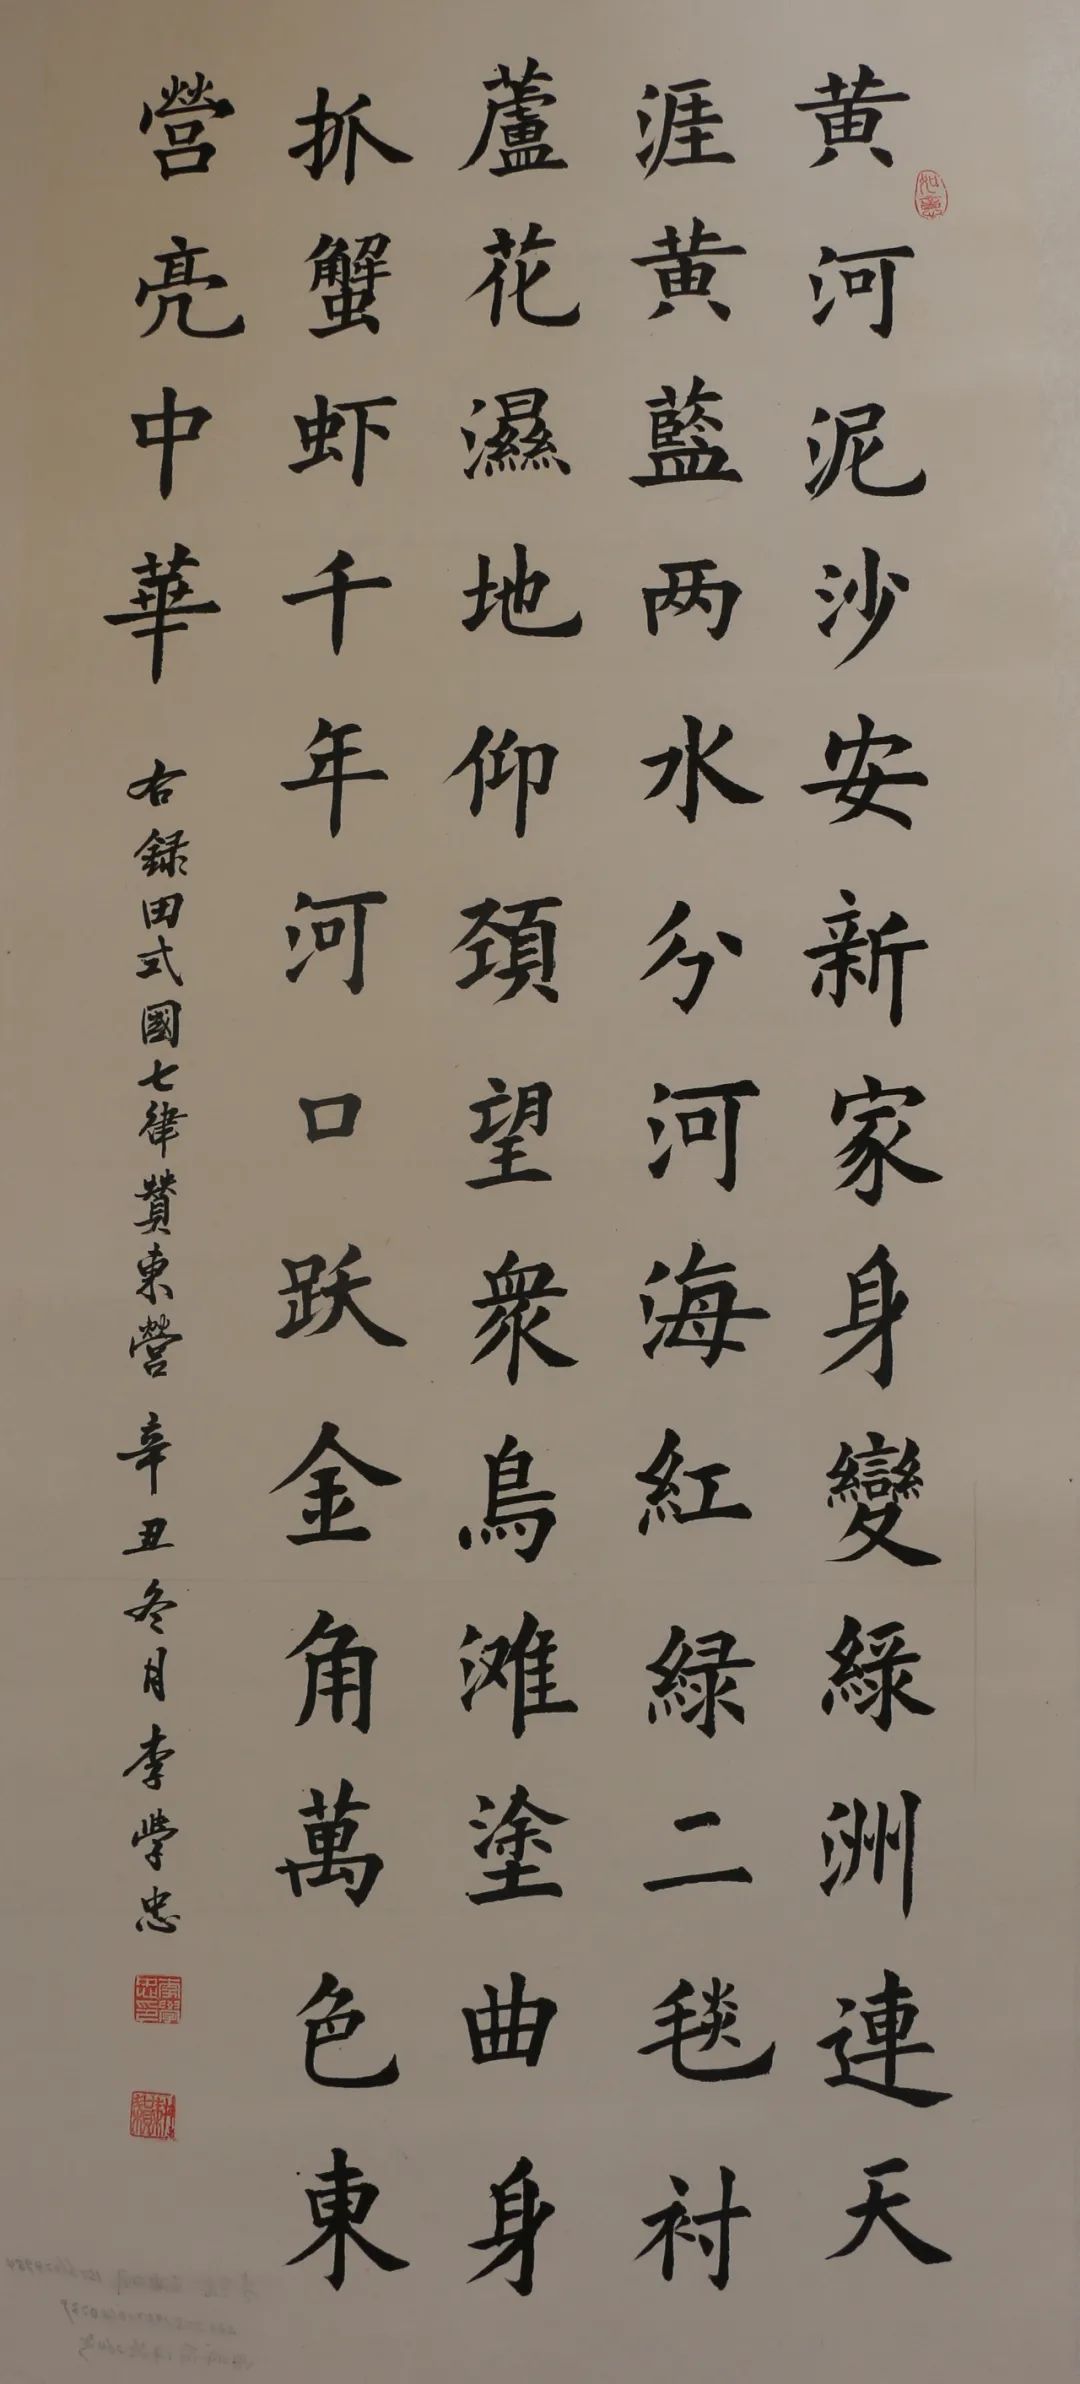 黄河泥沙安新家身變綠洲連天
涯黄藍两水分河海紅緑二毯衬
蘆花濕地仰頚望衆鳥滩塗曲身
抓蟹虾千年河口跃金角萬色東
營亮中華
右録田式國七律贊東營 辛丑冬月李學忠
李學忠印